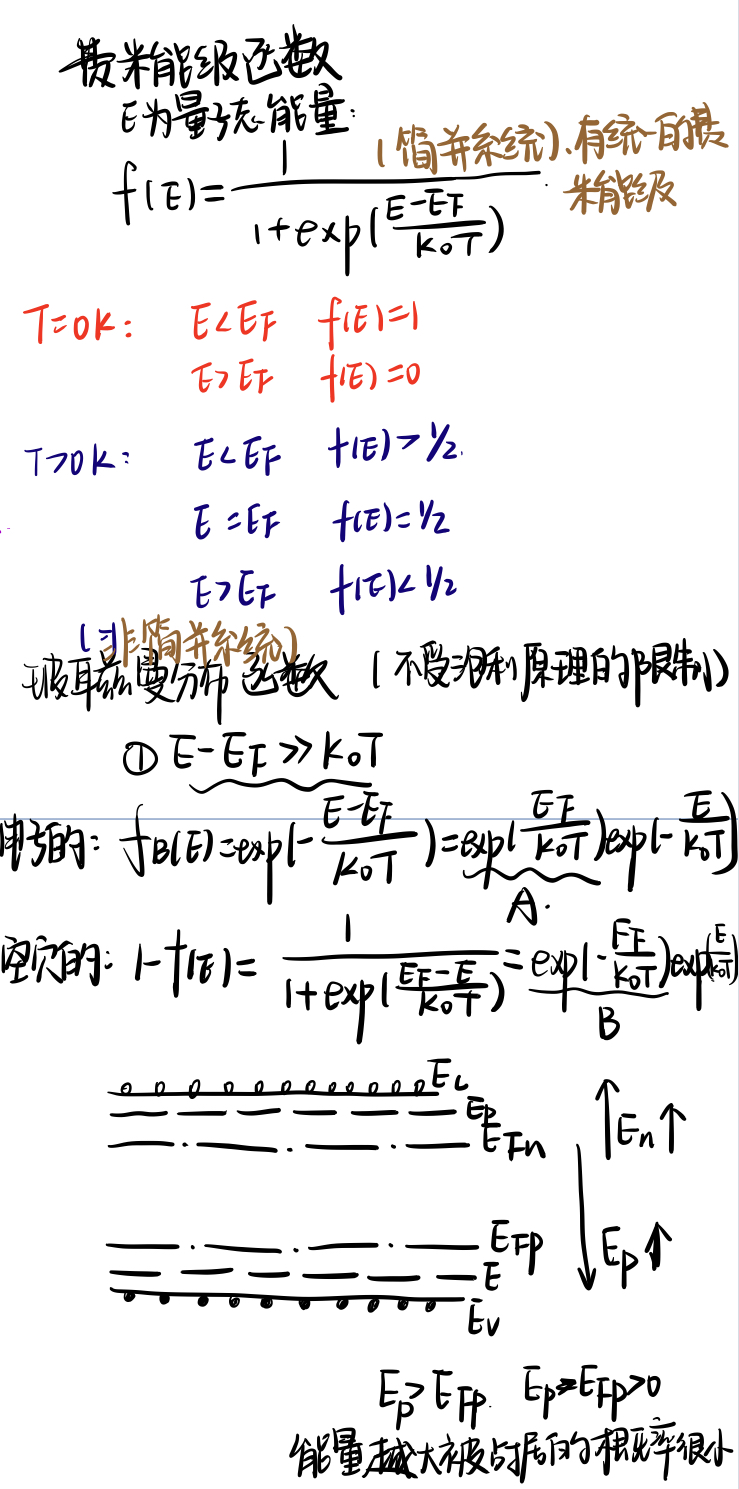 费米能级函数
E为量子态能量:
f(E)=1/(1+exp((E-EF)/(K0T)))
(简并系统).有统一的费
米能级
T=0K: E<EF f(E)=1
E>EF f(E)=0
T>0K: E<EF f(E)>1/2.
E=EF f(E)=1/2
E>EF f(E)<1/2
(非简并系统)
玻耳兹曼分布函数 (不受泡利原理的限制)
① E-EF≫K0T
电子的: fB(E)=exp(-(E-EF)/(K0T))=exp(EF/(K0T))exp(-E/(K0T))
A.
空穴的: 1-f(E)=1/(1+exp((EF-E)/(K0T)))=exp(-EF/(K0T))exp(E/(K0T))
B
Ec
ED
EFn
En↑
EFp
Ep↑
E
Ev
Ep>EFp. Ep-EFp>0
能量越大被占据的概率很小